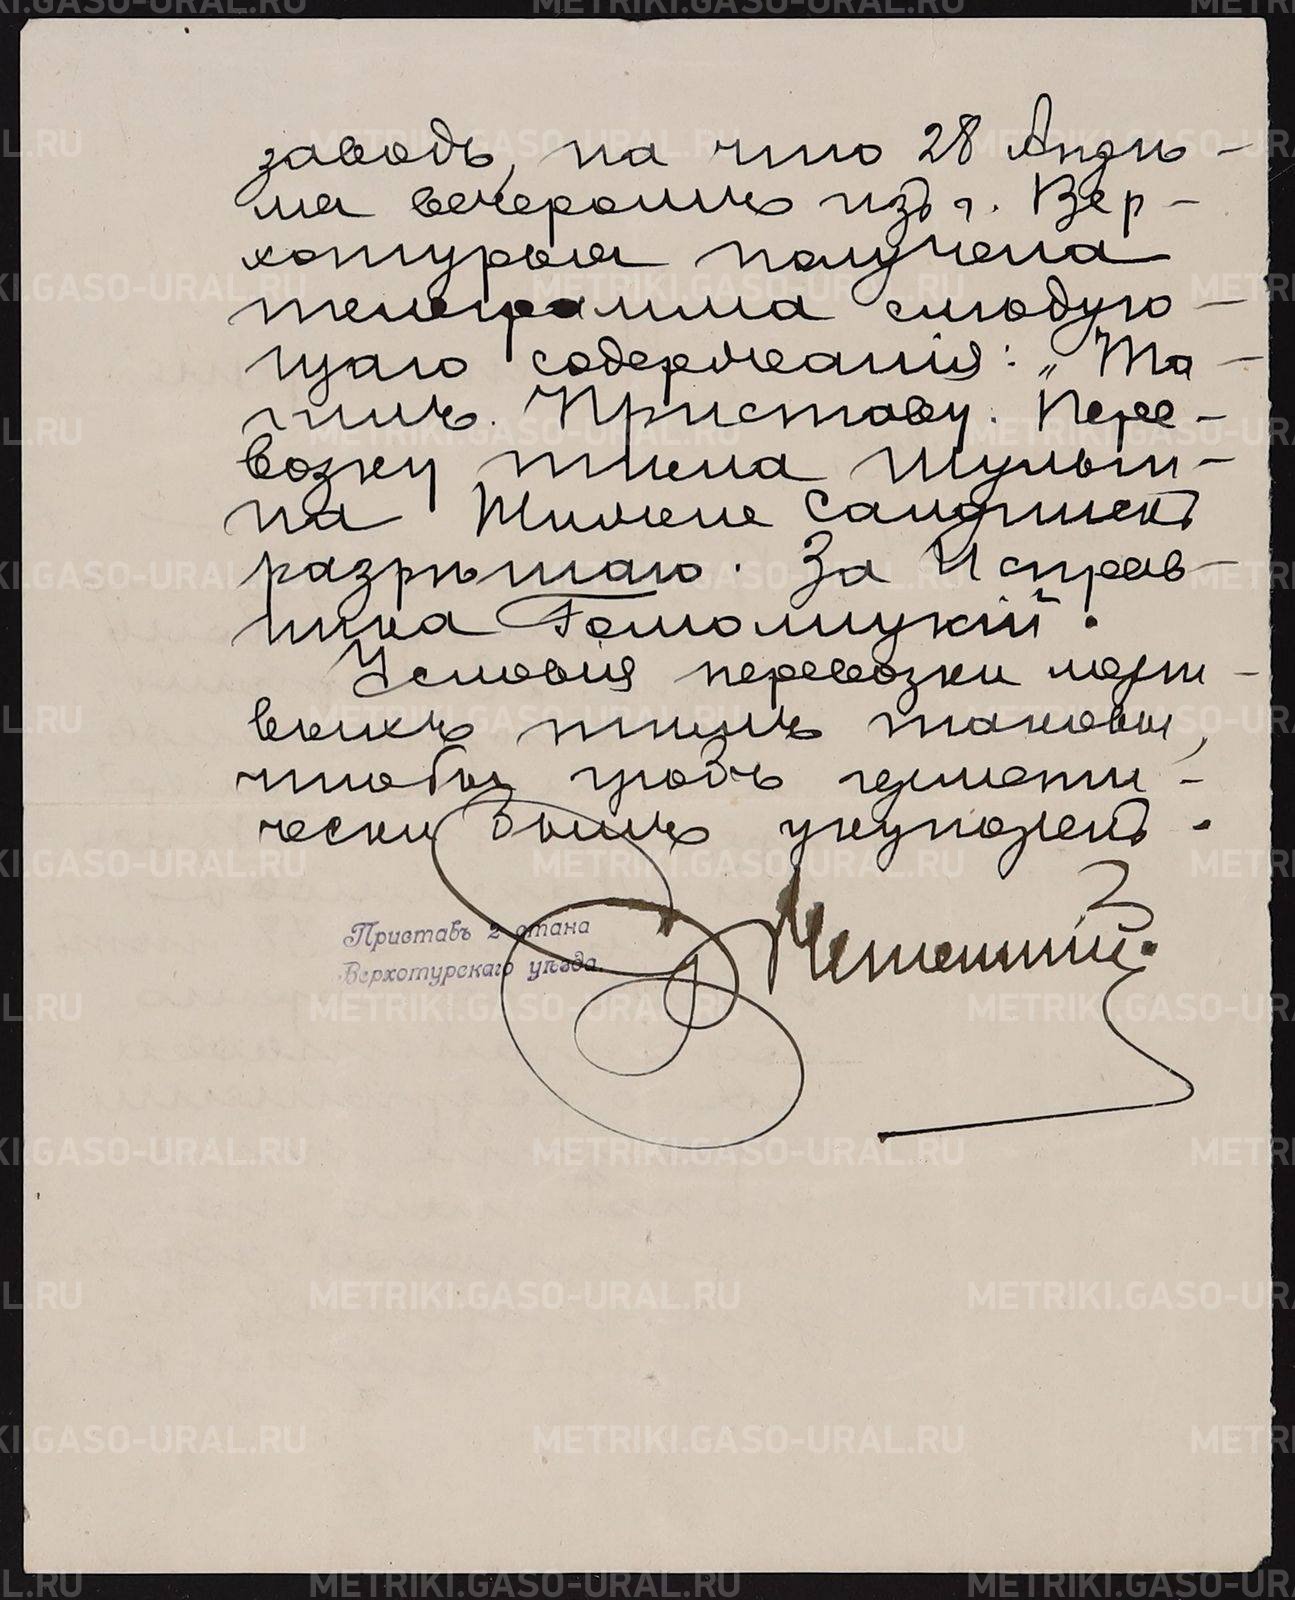 заводъ, на что 28 Апрѣ-
ля вечеромъ изъ г. Вер-
хотурья получена
телеграмма слѣдую-
щаго содержанія: „Та-
гилъ. Приставу. Пере-
возку тѣла Шульги-
на Нижне Салдинскъ
разрѣшаю. За Исправ-
ника Гомолицкій.
Условія перевозки мерт-
выхъ тѣлъ таковы,
чтобы гробъ гермети-
чески былъ укупоренъ.
Приставъ 2 стана
Верхотурскаго уѣзда.
METRIKI.GASO-URAL.RU